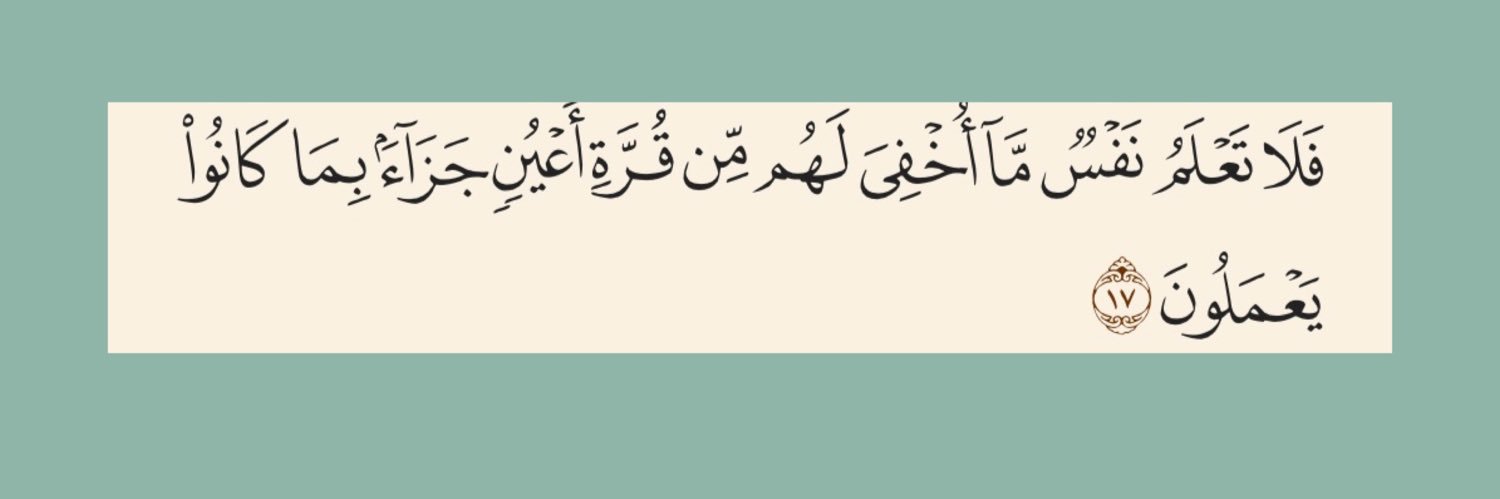 فَلَا تَعۡلَمُ نَفۡسٞ مَّآ أُخۡفِيَ لَهُم مِّن قُرَّةِ أَعۡيُنٖ جَزَآءَۢ بِمَا كَانُواْ
يَعۡمَلُونَ ١٧